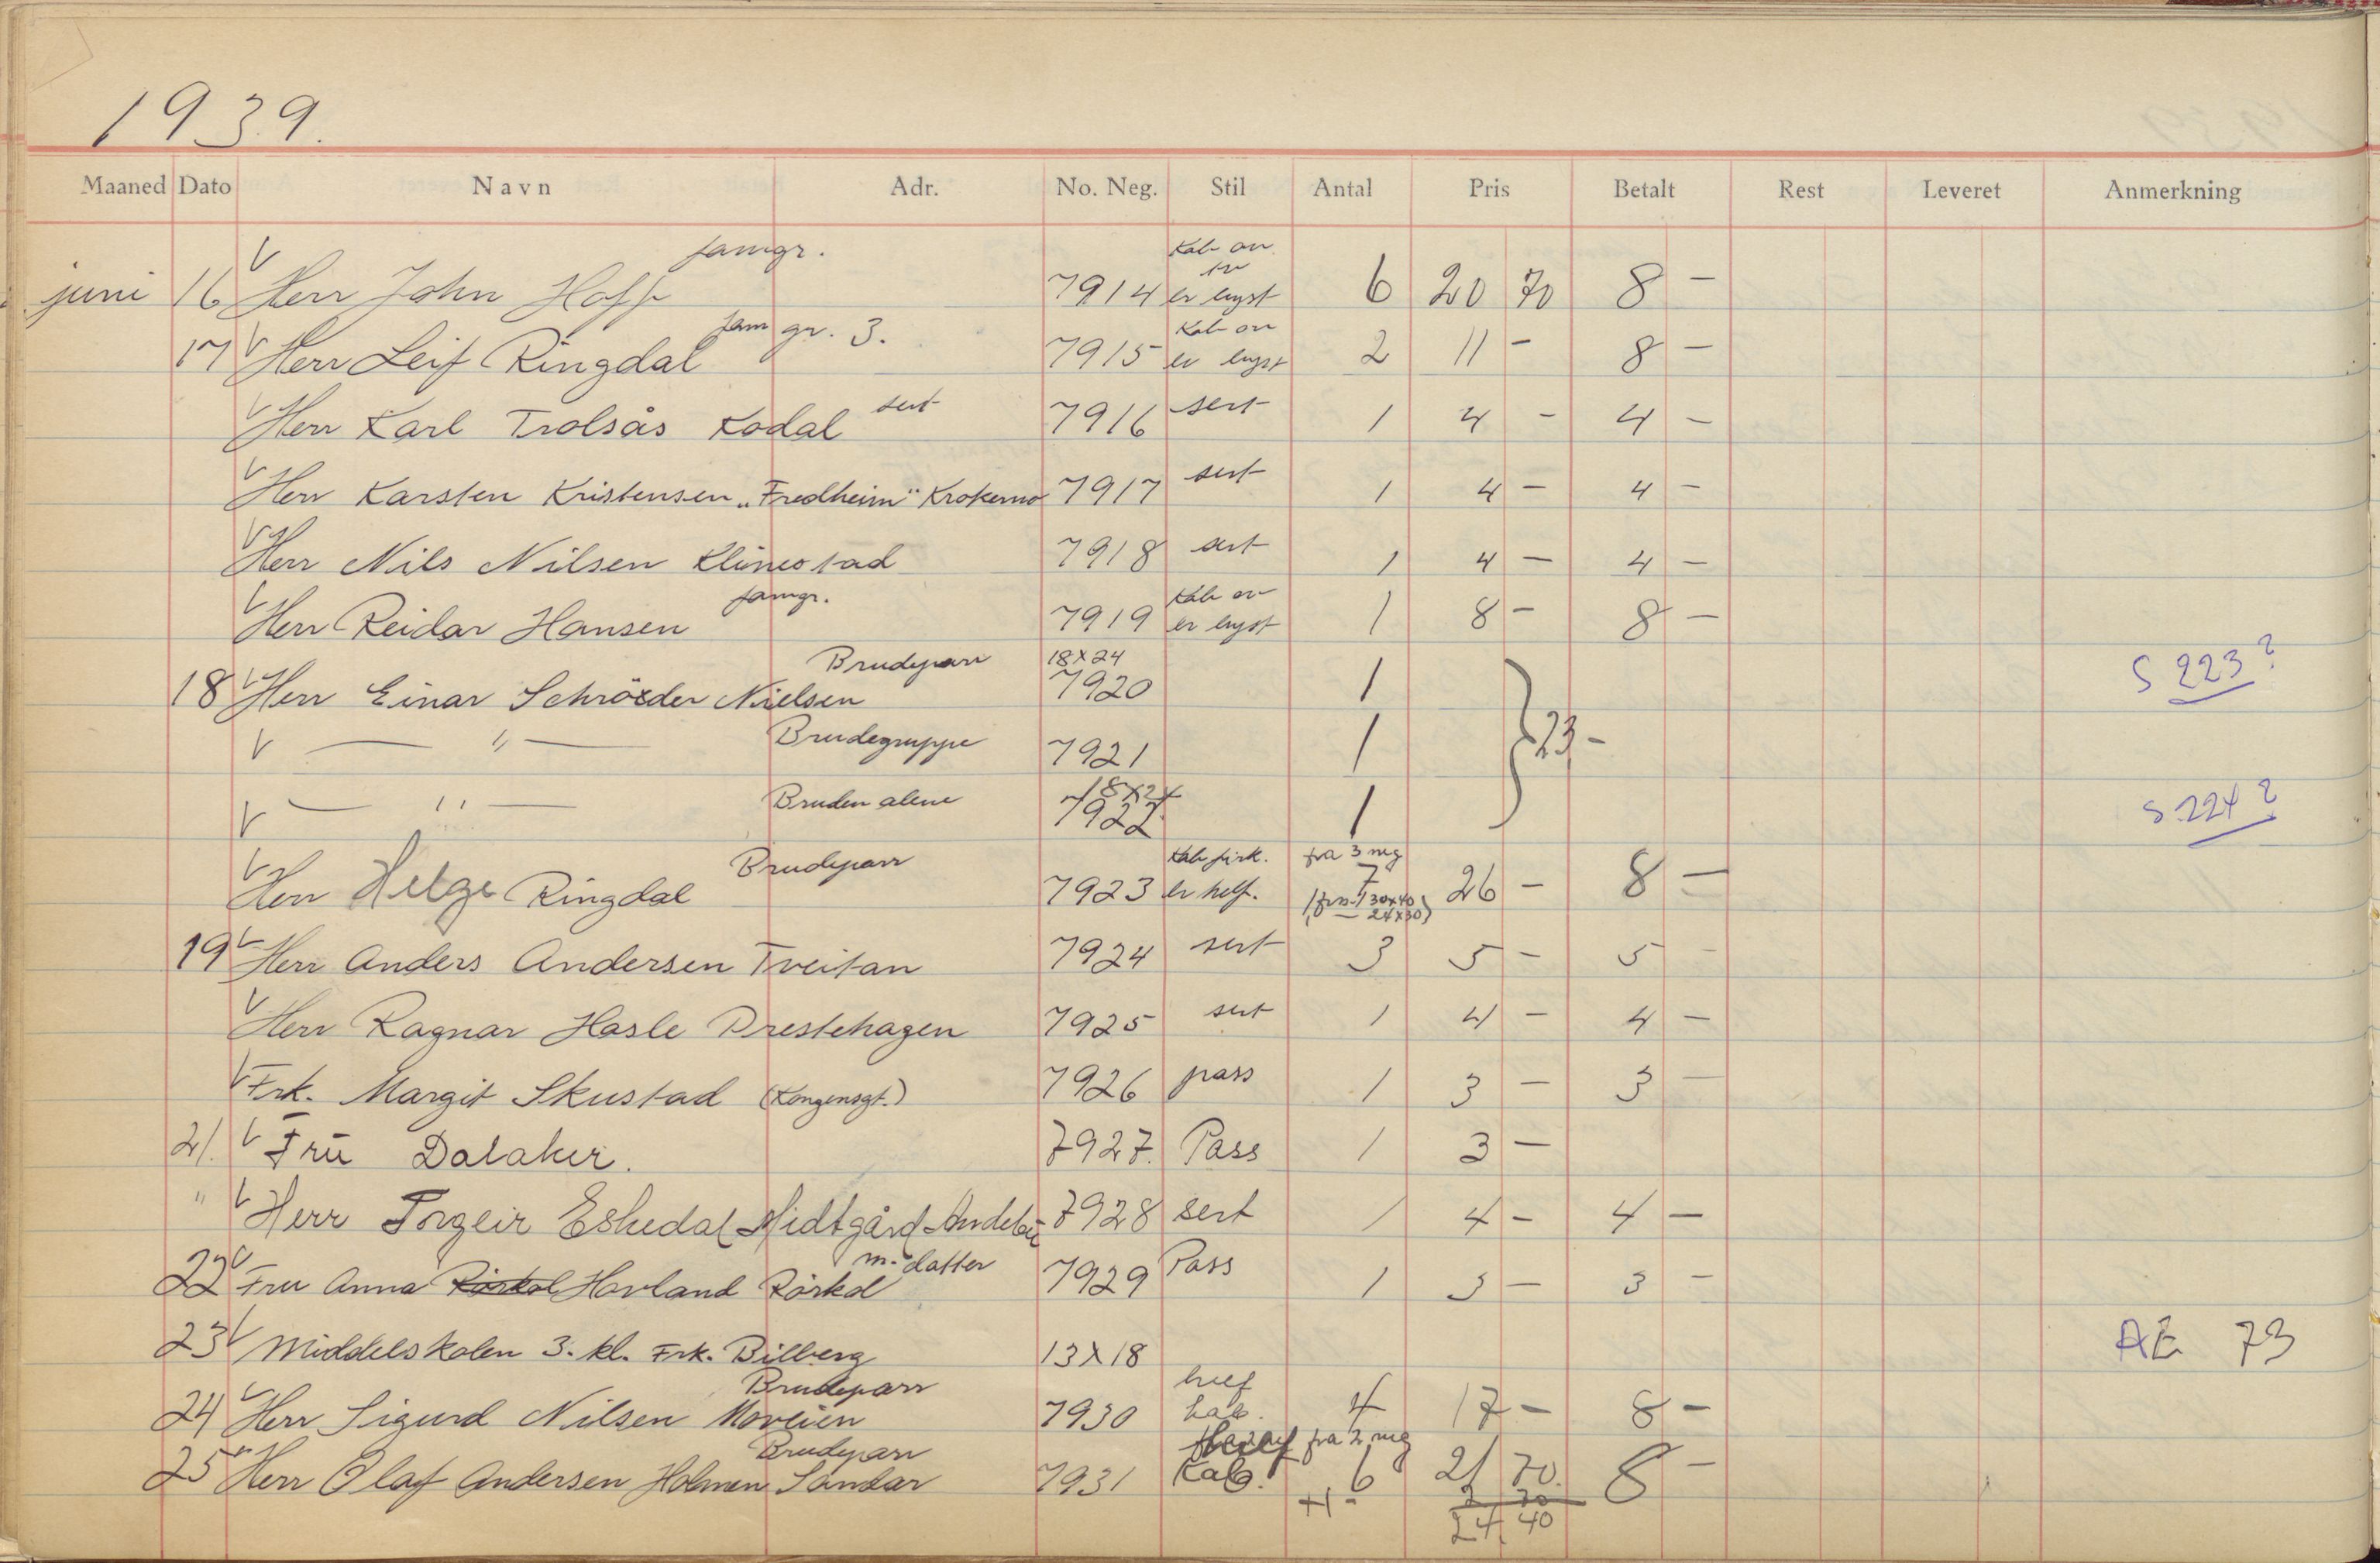 1939.
Maaned Dato Navn Adr. No. Neg. Stil Antal Pris Betalt Rest Leveret Anmerkning
famgr. Kab on
juni 16 Herr John Hoff 7914 er lyst 6 20 70 8 -
fam gr. 3. Kab on
17 Herr Leif Ringdal 7915 er lyst 2 11 - 8 -
Herr Karl Trolsås Kodal sert 7916 sert 1 4 - 4 -
Herr Karsten Kristensen „Fredheim" Krokemo 7917 sert 1 4 - 4 -
Herr Nils Nilsen Klinestad 7918 sert 1 4 - 4 -
famgr. Kab on
Herr Reidar Hansen 7919 er lyst 1 8 - 8 -
Brudepar 18x24 S 223?
18 Herr Einar Schröder Nielsen 7920 1
— " — Brudegruppe 7921 1 23 -
— " — Bruden alene 18x24 S 224?
7922 1
Brudeparr Kab firk. fra 3 neg
Herr Helge Ringdal 7923 er helf. 7 26 - 8 -
30x40
24x30)
19 Herr Anders Andersen Tveitan 7924 sert 3 5 - 5 -
Herr Ragnar Hasle Prestehagen 7925 sert 1 4 - 4 -
Frk. Margit Skustad (Kongensgt.) 7926 pass 1 3 - 3 -
21. Frü Dalaker. 7927. Pass 1 3 -
" Herr Torgeir Eskedal Midtgård Andebu 7928 sert 1 4 - 4 -
m. datter Pass
22 Fru Anna Rörkol Hovland Rörkol 7929 1 3 - 3 -
23 Middelskolen 3. kl. Frk. Bilberg 13x18 AE 73
Brudeparr helf
24 Herr Sigurd Nilsen Moveien 7930 kab. 4 17 - 8 -
Brudeparr fra 2 neg
25 Herr Olaf Andersen Holmen Sandar 7931 Kab. 6 21 70 8 -
+1 - 2 70
24, 40